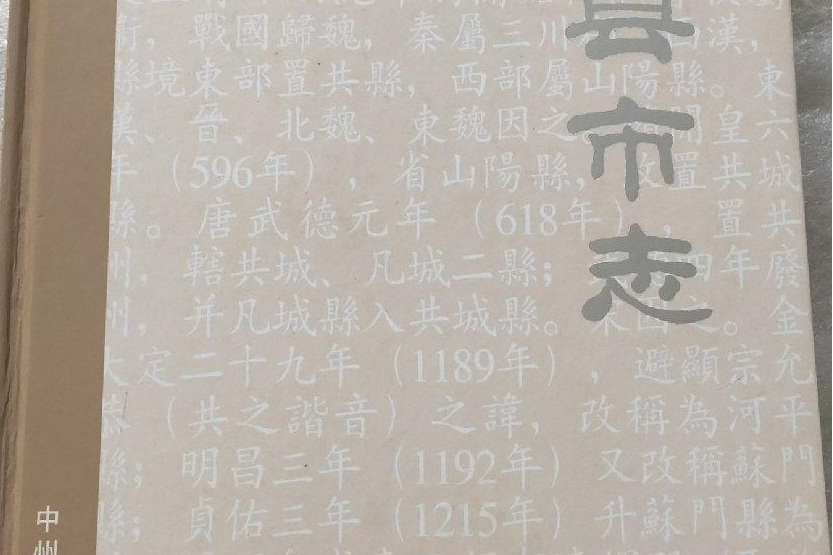 縣市志
衛，戰國歸魏，秦屬三川 漢，
縣境東部置共縣，西部屬山陽縣。東
漢、晉、北魏、東魏因之 開皇六
年（596年），省山陽縣，改置共城
縣。唐武德元年（618年），置共
州，轄共城、凡城二縣； 四年廢
州，并凡城縣入共城縣。宋因之。金
大定二十九年（1189年），避顯宗允
恭（共之諧音）之諱，改稱為河平
縣；明昌三年（1192年）又改稱蘇門
縣；貞佑三年（1215年）升蘇門縣為
中州